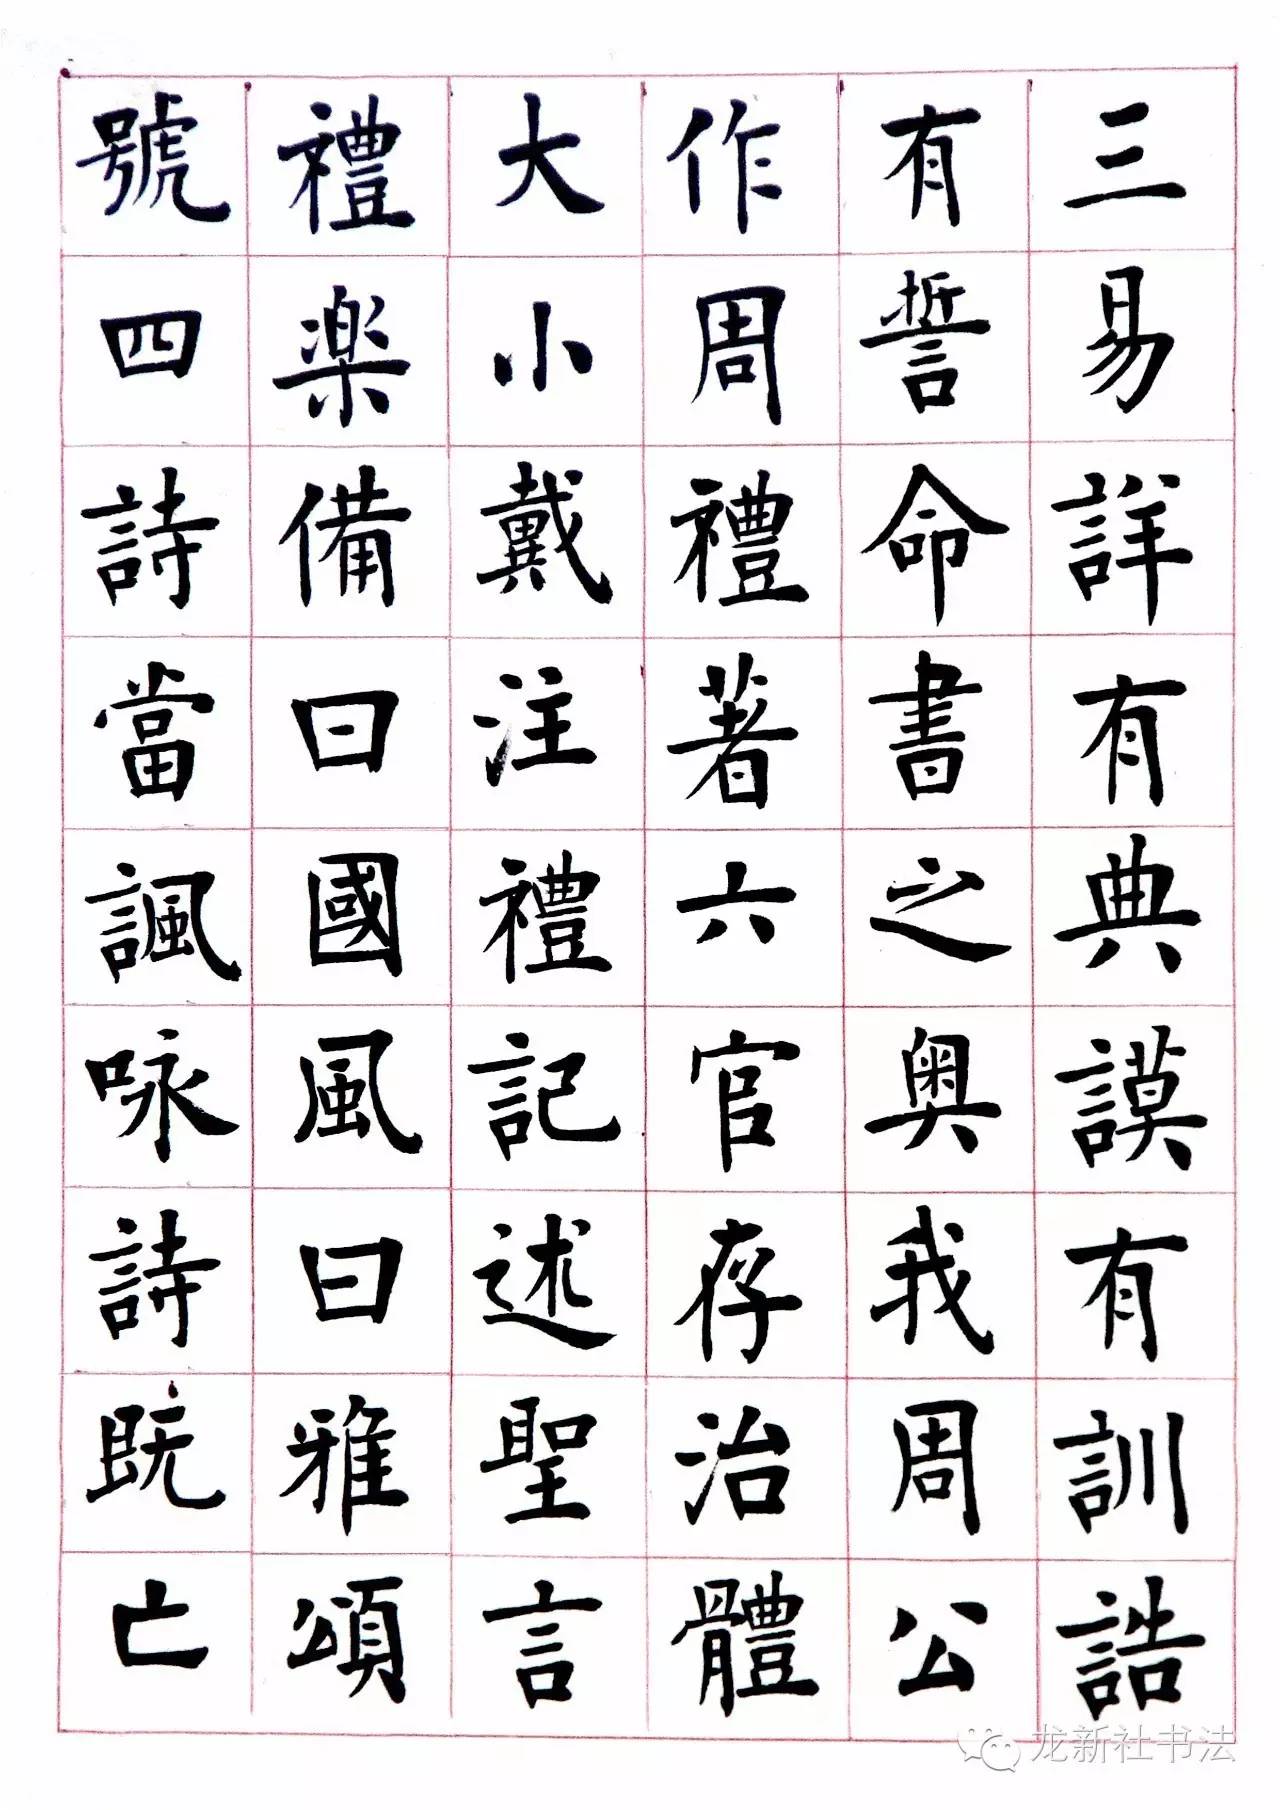 三易詳有典謨有訓誥
有誓命書之奧我周公
作周禮著六官存治體
大小戴注禮記述聖言
禮楽備曰國風曰雅頌
號四詩當諷咏詩既亡
龙新社书法